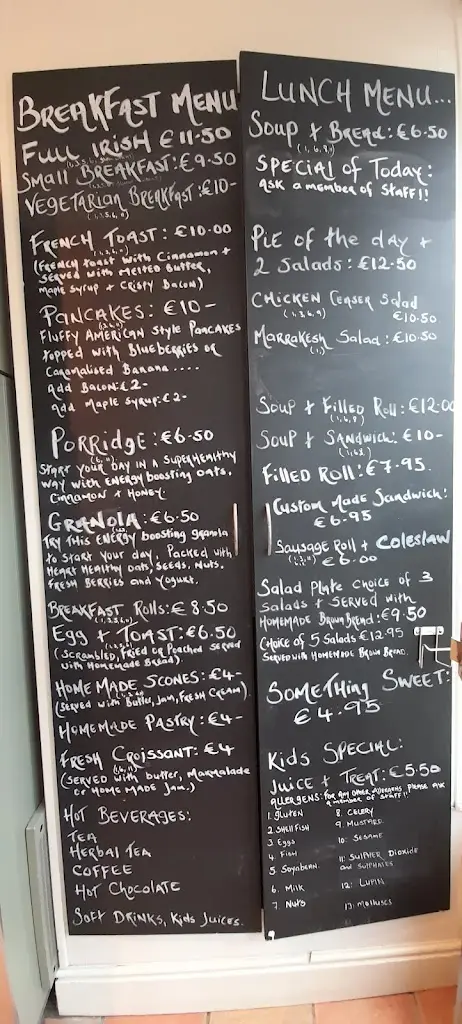 BREAKFAST MENU
FULL IRISH €11.50
SMALL BREAKFAST: €9.50
VEGETARIAN BREAKFAST: €10-
FRENCH TOAST: €10.00
(FRENCH TOAST WITH CINNAMON +
SERVED WITH MELTED BUTTER,
MAPLE SYRUP + CRISPY BACON)
PANCAKES: €10-
FLUFFY AMERICAN STYLE PANCAKES
TOPPED WITH BLUEBERRIES OR
CARAMALISED BANANA ....
ADD BACON: €2-
ADD MAPLE SYRUP: €2-
PORRIDGE: €6.50
START YOUR DAY IN A SUPERHEALTHY
WAY WITH ENERGY BOOSTING OATS,
CINNAMON + HONEY.
GRANOLA: €6.50
TRY THIS ENERGY BOOSTING GRANOLA
TO START YOUR DAY, PACKED WITH
HEART HEALTHY OATS, SEEDS, NUTS,
FRESH BERRIES AND YOGURT.
BREAKFAST ROLLS: €8.50
EGG + TOAST: €6.50
(SCRAMBLED, FRIED OR POACHED SERVED
WITH HOMEMADE BREAD).
HOME MADE SCONES: €4-
(SERVED WITH BUTTER, JAM, FRESH CREAM).
HOMEMADE PASTRY: €4-
FRESH CROISSANT: €4
(SERVED WITH BUTTER, MARMALADE
OR HOME MADE JAM.)
HOT BEVERAGES:
TEA
HERBAL TEA
COFFEE
HOT CHOCOLATE
SOFT DRINKS, KIDS JUICES.
LUNCH MENU...
SOUP + BREAD: €6.50
SPECIAL OF TODAY:
ASK A MEMBER OF STAFF!!
PIE OF THE DAY +
2 SALADS: €12.50
CHICKEN CEASER SALAD
(1, 3, 6, 9)
€10.50
MARRAKESH SALAD: €10.50
(1)
SOUP + FILLED ROLL: €12.00
SOUP + SANDWICH: €10-
FILLED ROLL: €7.95.
CUSTOM MADE SANDWICH!
€6.95
SAUSAGE ROLL + COLESLAW
€6.00
SALAD PLATE CHOICE OF 3
SALADS + SERVED WITH
HOMEMADE BROWN BREAD: €9.50
CHOICE OF 5 SALADS €12.95
SERVED WITH HOMEMADE BROWN BREAD.
SOMETHING SWEET:
€4.95
KIDS SPECIAL:
JUICE + TREAT: €5.50
ALLERGENS: FOR ANY OTHER ALLERGENS PLEASE ASK
A MEMBER OF STAFF!!
1. GLUTEN
2. SHELLFISH
3. EGGS
4. FISH
5. SOYABEAN
6. MILK
7. NUTS
8. CELERY
9. MUSTARD
10. SESAME
11. SULPHER DIOXIDE
AND SULPHATES
12. LUPIN
13. MOLLUSCS